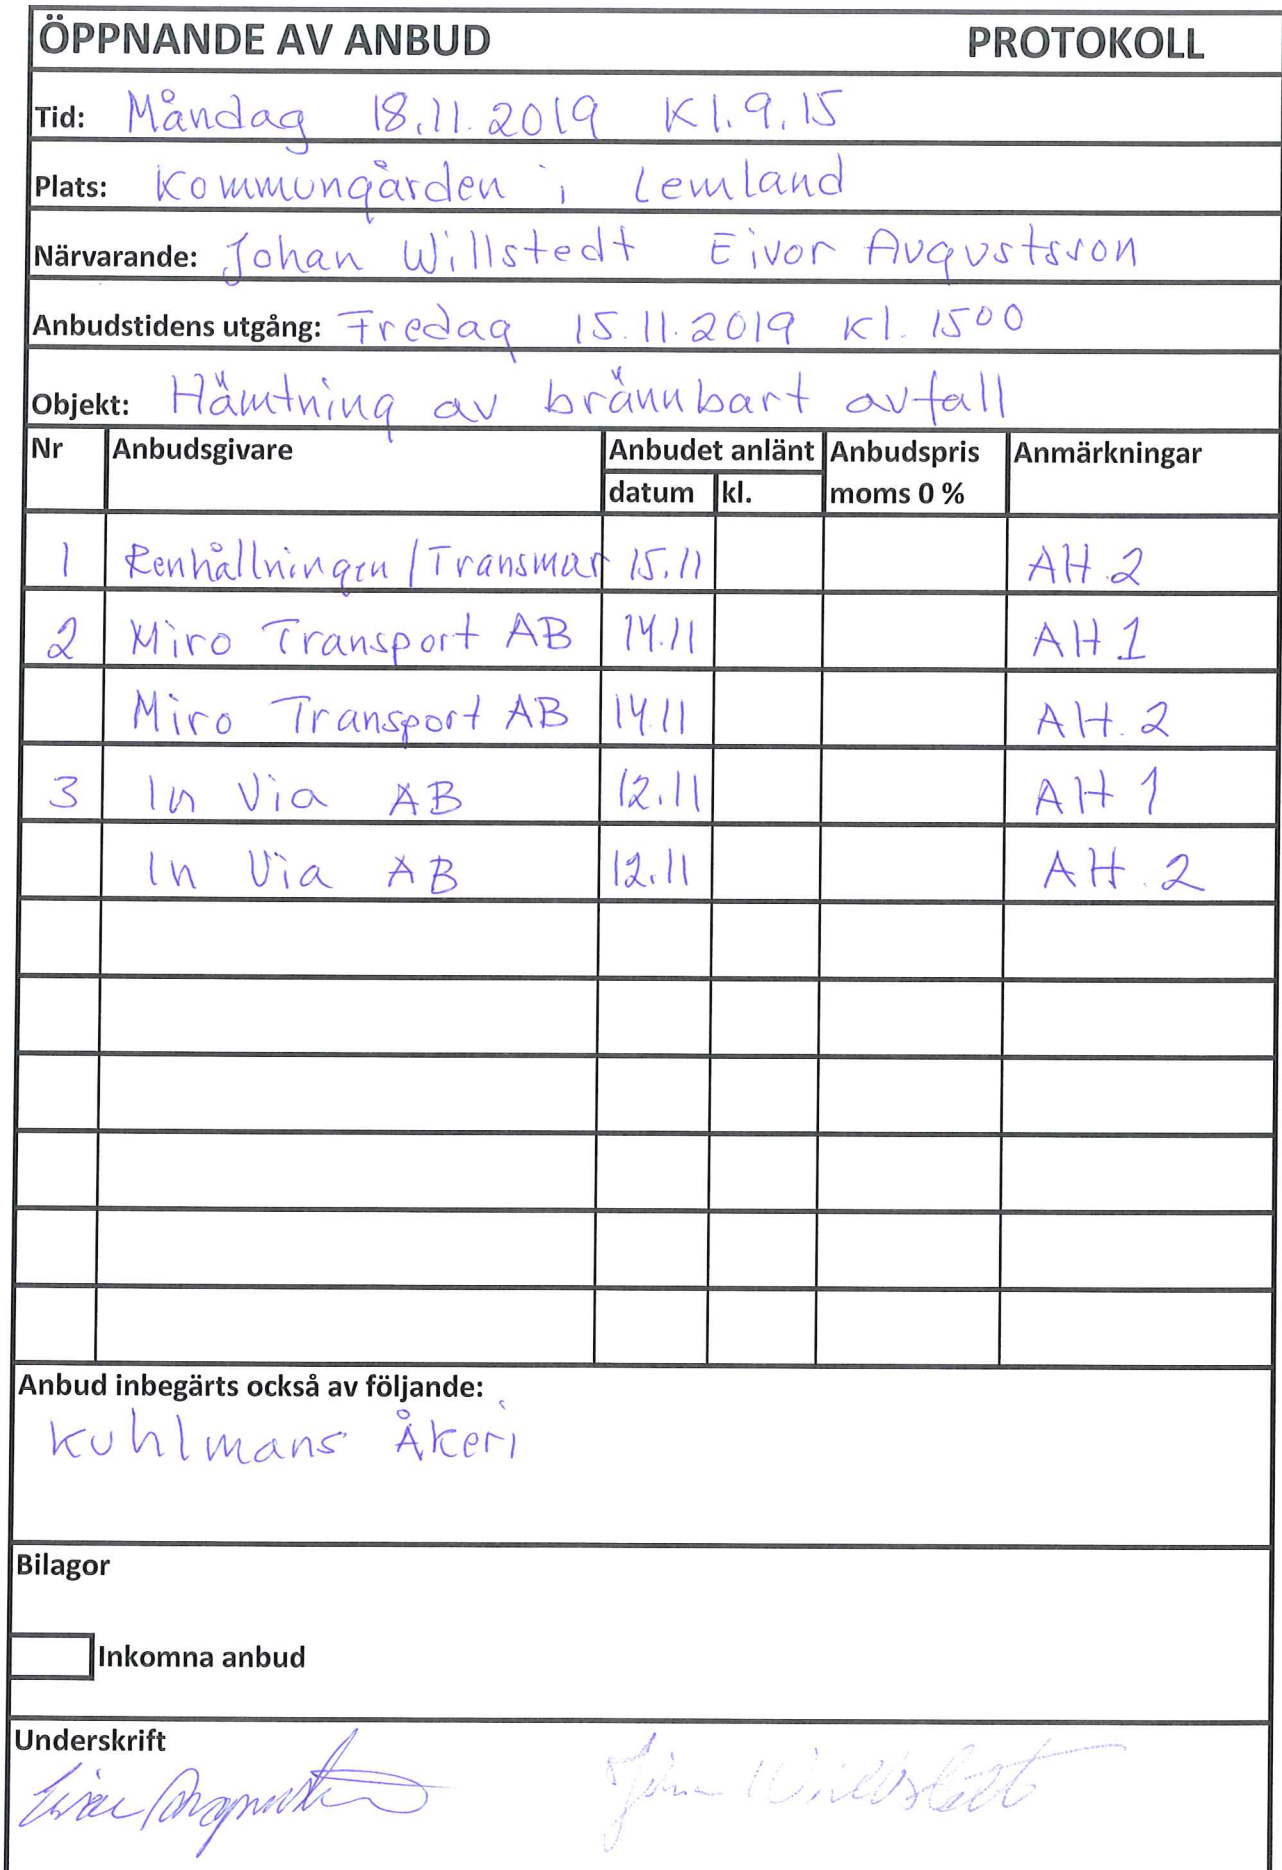 ÖPPNANDE AV ANBUD PROTOKOLL
Tid: Måndag 18.11.2019 Kl. 9.15
Plats: Kommungården i Lemland
Närvarande: Johan Willstedt Eivor Augustsson
Anbudstidens utgång: Fredag 15.11.2019 Kl. 15⁰⁰
Objekt: Hämtning av brännbart avfall
Nr Anbudsgivare Anbudet anlänt Anbudspris Anmärkningar
datum kl. moms 0 %
1 Renhållningen / Transmar 15.11 AH.2
2 Miro Transport AB 14.11 AH 1
Miro Transport AB 14.11 AH.2
3 In Via AB 12.11 AH 1
In Via AB 12.11 AH.2
Anbud inbegärts också av följande:
Kuhlmans Åkeri
Bilagor
Inkomna anbud
Underskrift
Eivor Augustsson Johan Willstedt